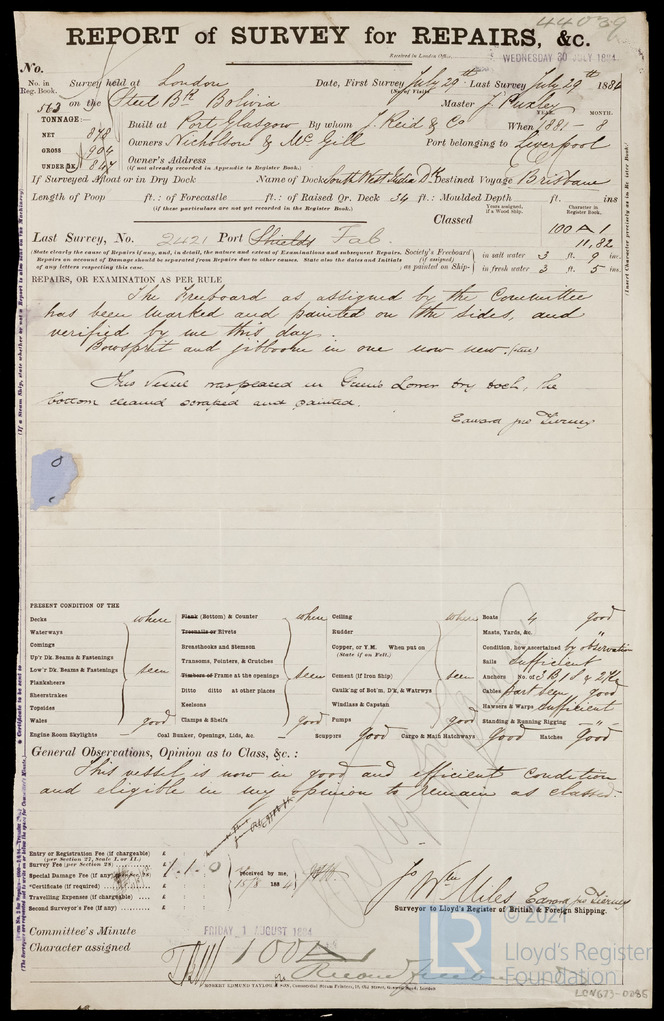 44039
REPORT of SURVEY for REPAIRS, &c.
Received in London Office, WEDNESDAY 30 JULY 1884
No.
No. in Reg. Book. Survey held at London Date, First Survey July 29th Last Survey July 29th 1884
(No. of Visits)
563 on the Steel Bk Bolivia Master J. Puxley
TONNAGE:— YEAR. MONTH.
NET 878 Built at Port Glasgow By whom J. Reid & Co When 1881 - 8
GROSS 904 Owners Nicholson & McGill Port belonging to Liverpool
UNDER DK. 847 Owner's Address
(if not already recorded in Appendix to Register Book.)
If Surveyed Afloat or in Dry Dock Name of Dock South West India Dk Destined Voyage Brisbane
Length of Poop ft.: of Forecastle ft.: of Raised Qr. Deck 34 ft.: Moulded Depth ft. ins
(if these particulars are not yet recorded in the Register Book.) Years assigned, if a Wood Ship. Character in Register Book.
Classed 100 A 1
Last Survey, No. 2421 Port Shields Fab. 11,82
(State clearly the cause of Repairs if any, and, in detail, the nature and extent of Examinations and subsequent Repairs. Society's Freeboard in salt water 3 ft. 9 ins.
Repairs on account of Damage should be separated from Repairs due to other causes. State also the dates and initials (if assigned) as painted on Ship in fresh water 3 ft. 5 ins.
of any letters respecting this case.
REPAIRS, OR EXAMINATION AS PER RULE
The Freeboard as assigned by the Committee
has been marked and painted on the sides, and
verified by me this day.
Bowsprit and jibboom in one now new. (steel)
This Vessel was placed in Green's Lower Dry dock, the
bottom cleaned scraped and painted.
Edward Jno Tierney
PRESENT CONDITION OF THE
Decks where Plank (Bottom) & Counter where Ceiling where Boats 4 good
Waterways Treenails or Rivets Rudder Masts, Yards, &c. "
Comings Breasthooks and Stemson Copper, or Y.M. When put on Condition, how ascertained by observation
(State if on Felt.)
Up'r Dk. Beams & Fastenings Transoms, Pointers, & Crutches Sails Sufficient
Low'r Dk. Beams & Fastenings seen Timbers or Frame at the openings seen Cement (If Iron Ship) seen Anchors No. of 3 B 1 S & 2 Ke
Planksheers Ditto ditto at other places Caulk'ng of Bot'm. D'k, & Watrwys Cables part seen good
Sheerstrakes Keelsons Windlass & Capstan Hawsers & Warps Sufficient
Topsides
Wales good Clamps & Shelfs good Pumps good Standing & Running Rigging — " —
Engine Room Skylights Coal Bunker, Openings, Lids, &c. Scuppers Good Cargo & Main Hatchways Good Hatches Good
General Observations, Opinion as to Class, &c.:
This vessel is now in good and efficient condition
and eligible in my opinion to remain as classed.
Entry or Registration Fee (if chargeable)
(per Section 27, Scale I. or II.)
Survey Fee (per Section 28) 1 . 1 . 0
Special Damage Fee (if any) Received by me,
*Certificate (if required) 188
Travelling Expenses (if chargeable)
Second Surveyor's Fee (if any)
Jo Wm Miles Edward Jno Tierney
Surveyor to Lloyd's Register of British & Foreign Shipping.
Committee's Minute FRIDAY 1 AUGUST 1884
Character assigned 100 A 1
ROBERT EDMUND TAYLOR & SON, Commercial Steam Printers
LR © 2021
Lloyd's Register
Foundation
LON673-0085